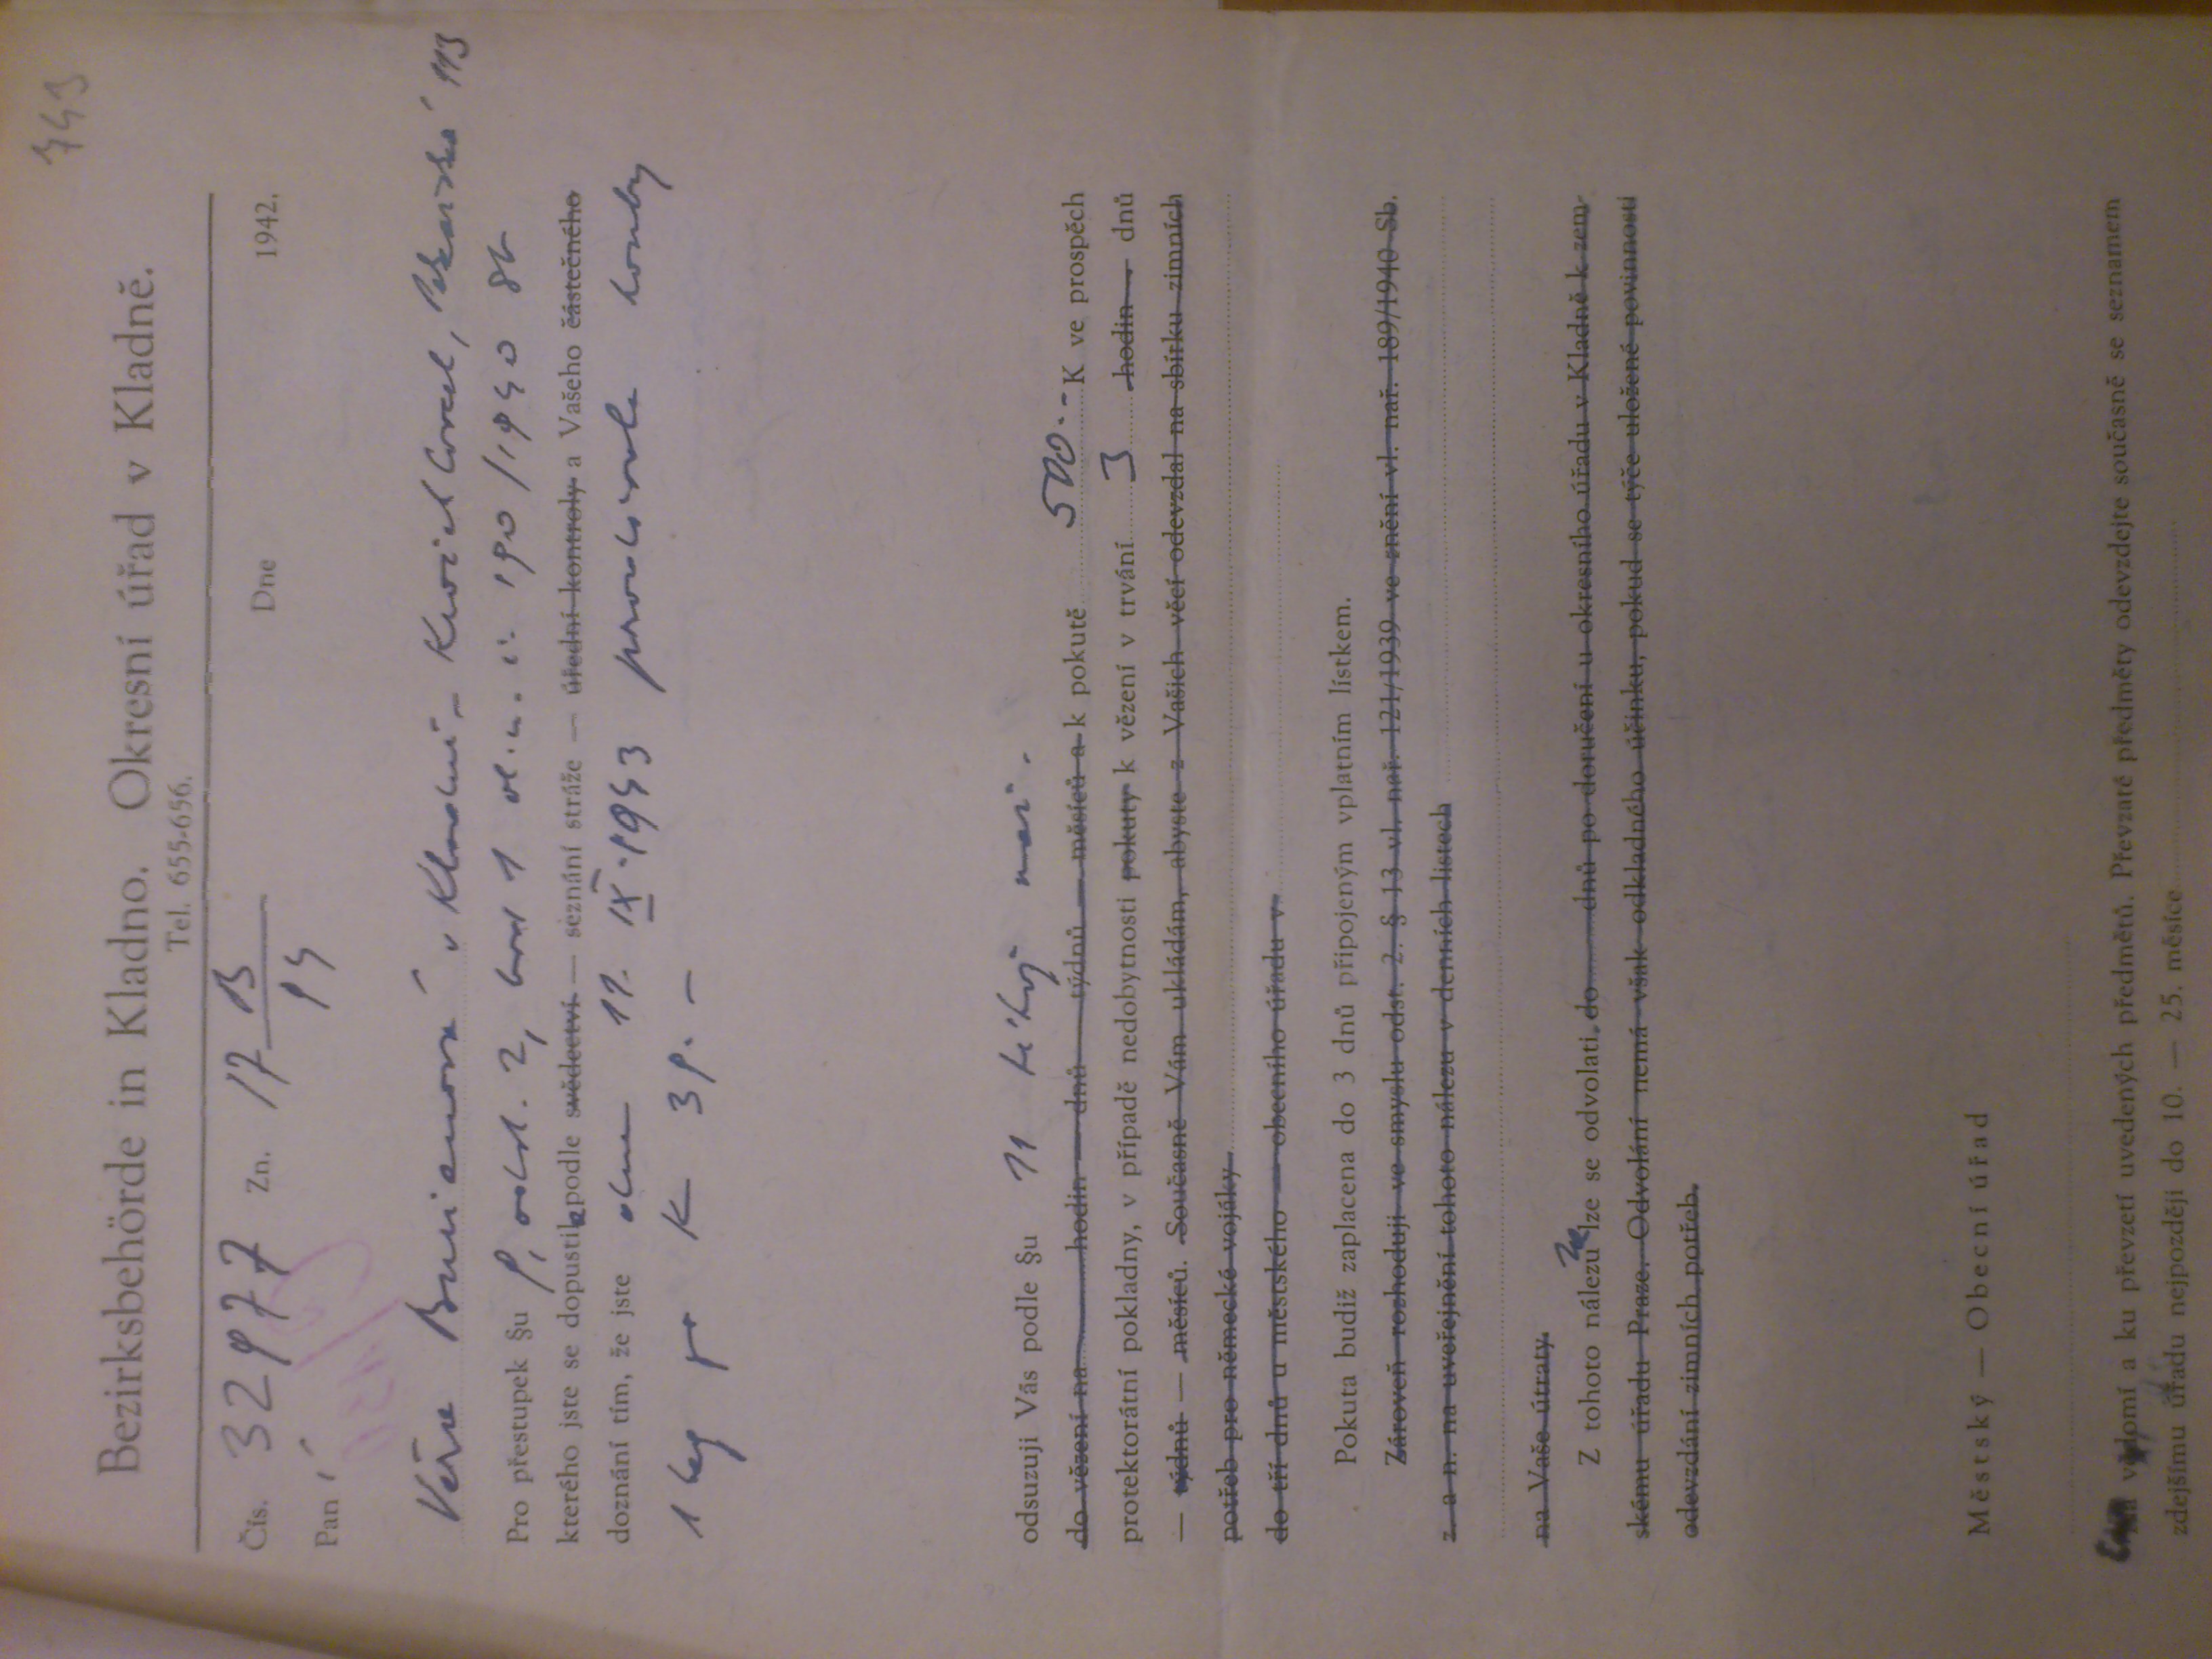 743
Bezirksbehörde in Kladno. Okresní úřad v Kladně.
Tel. 655-656.
Čís. 32977 Zn. 17 B/14 Dne 1942.
Pan í
Věra Burianová v Kladně - 113
Pro přestupek §u 9, odst. 2, bod 1 vl. n. č. 190/1940 Sb
kterého jste se dopustila podle svědectví — seznání stráže — úřední kontroly a Vašeho částečného
doznání tím, že jste dne 11. IX. 1943 prodávala houby
1 kg po K 39.-
odsuzuji Vás podle §u 11 téhož nař.
do vězení na hodin — dnů týdnů — měsíců a k pokutě 500.- K ve prospěch
protektorátní pokladny, v případě nedobytnosti pokuty k vězení v trvání 3 hodin — dnů
— týdnů — měsíců. Současně Vám ukládám, abyste z Vašich věcí odevzdal na sbírku zimních
potřeb pro německé vojáky
do tří dnů u městského — obecního úřadu v
Pokuta budiž zaplacena do 3 dnů připojeným vplatním lístkem.
Zároveň rozhoduji ve smyslu odst. 2. § 13 vl. nař. 121/1939 ve znění vl. nař. 189/1940 Sb.
z. a n. na uveřejnění tohoto nálezu v denních listech
na Vaše útraty.
Z tohoto nálezu ne lze se odvolati do dnů po doručení u okresního úřadu v Kladně k zem-
skému úřadu Praze. Odvolání nemá však odkladného účinku, pokud se týče uložené povinnosti
odevzdání zimních potřeb.
Městský — Obecní úřad
Na vědomí a ku převzetí uvedených předmětů. Převzaté předměty odevzdejte současně se seznamem
zdejšímu úřadu nejpozději do 10. — 25. měsíce